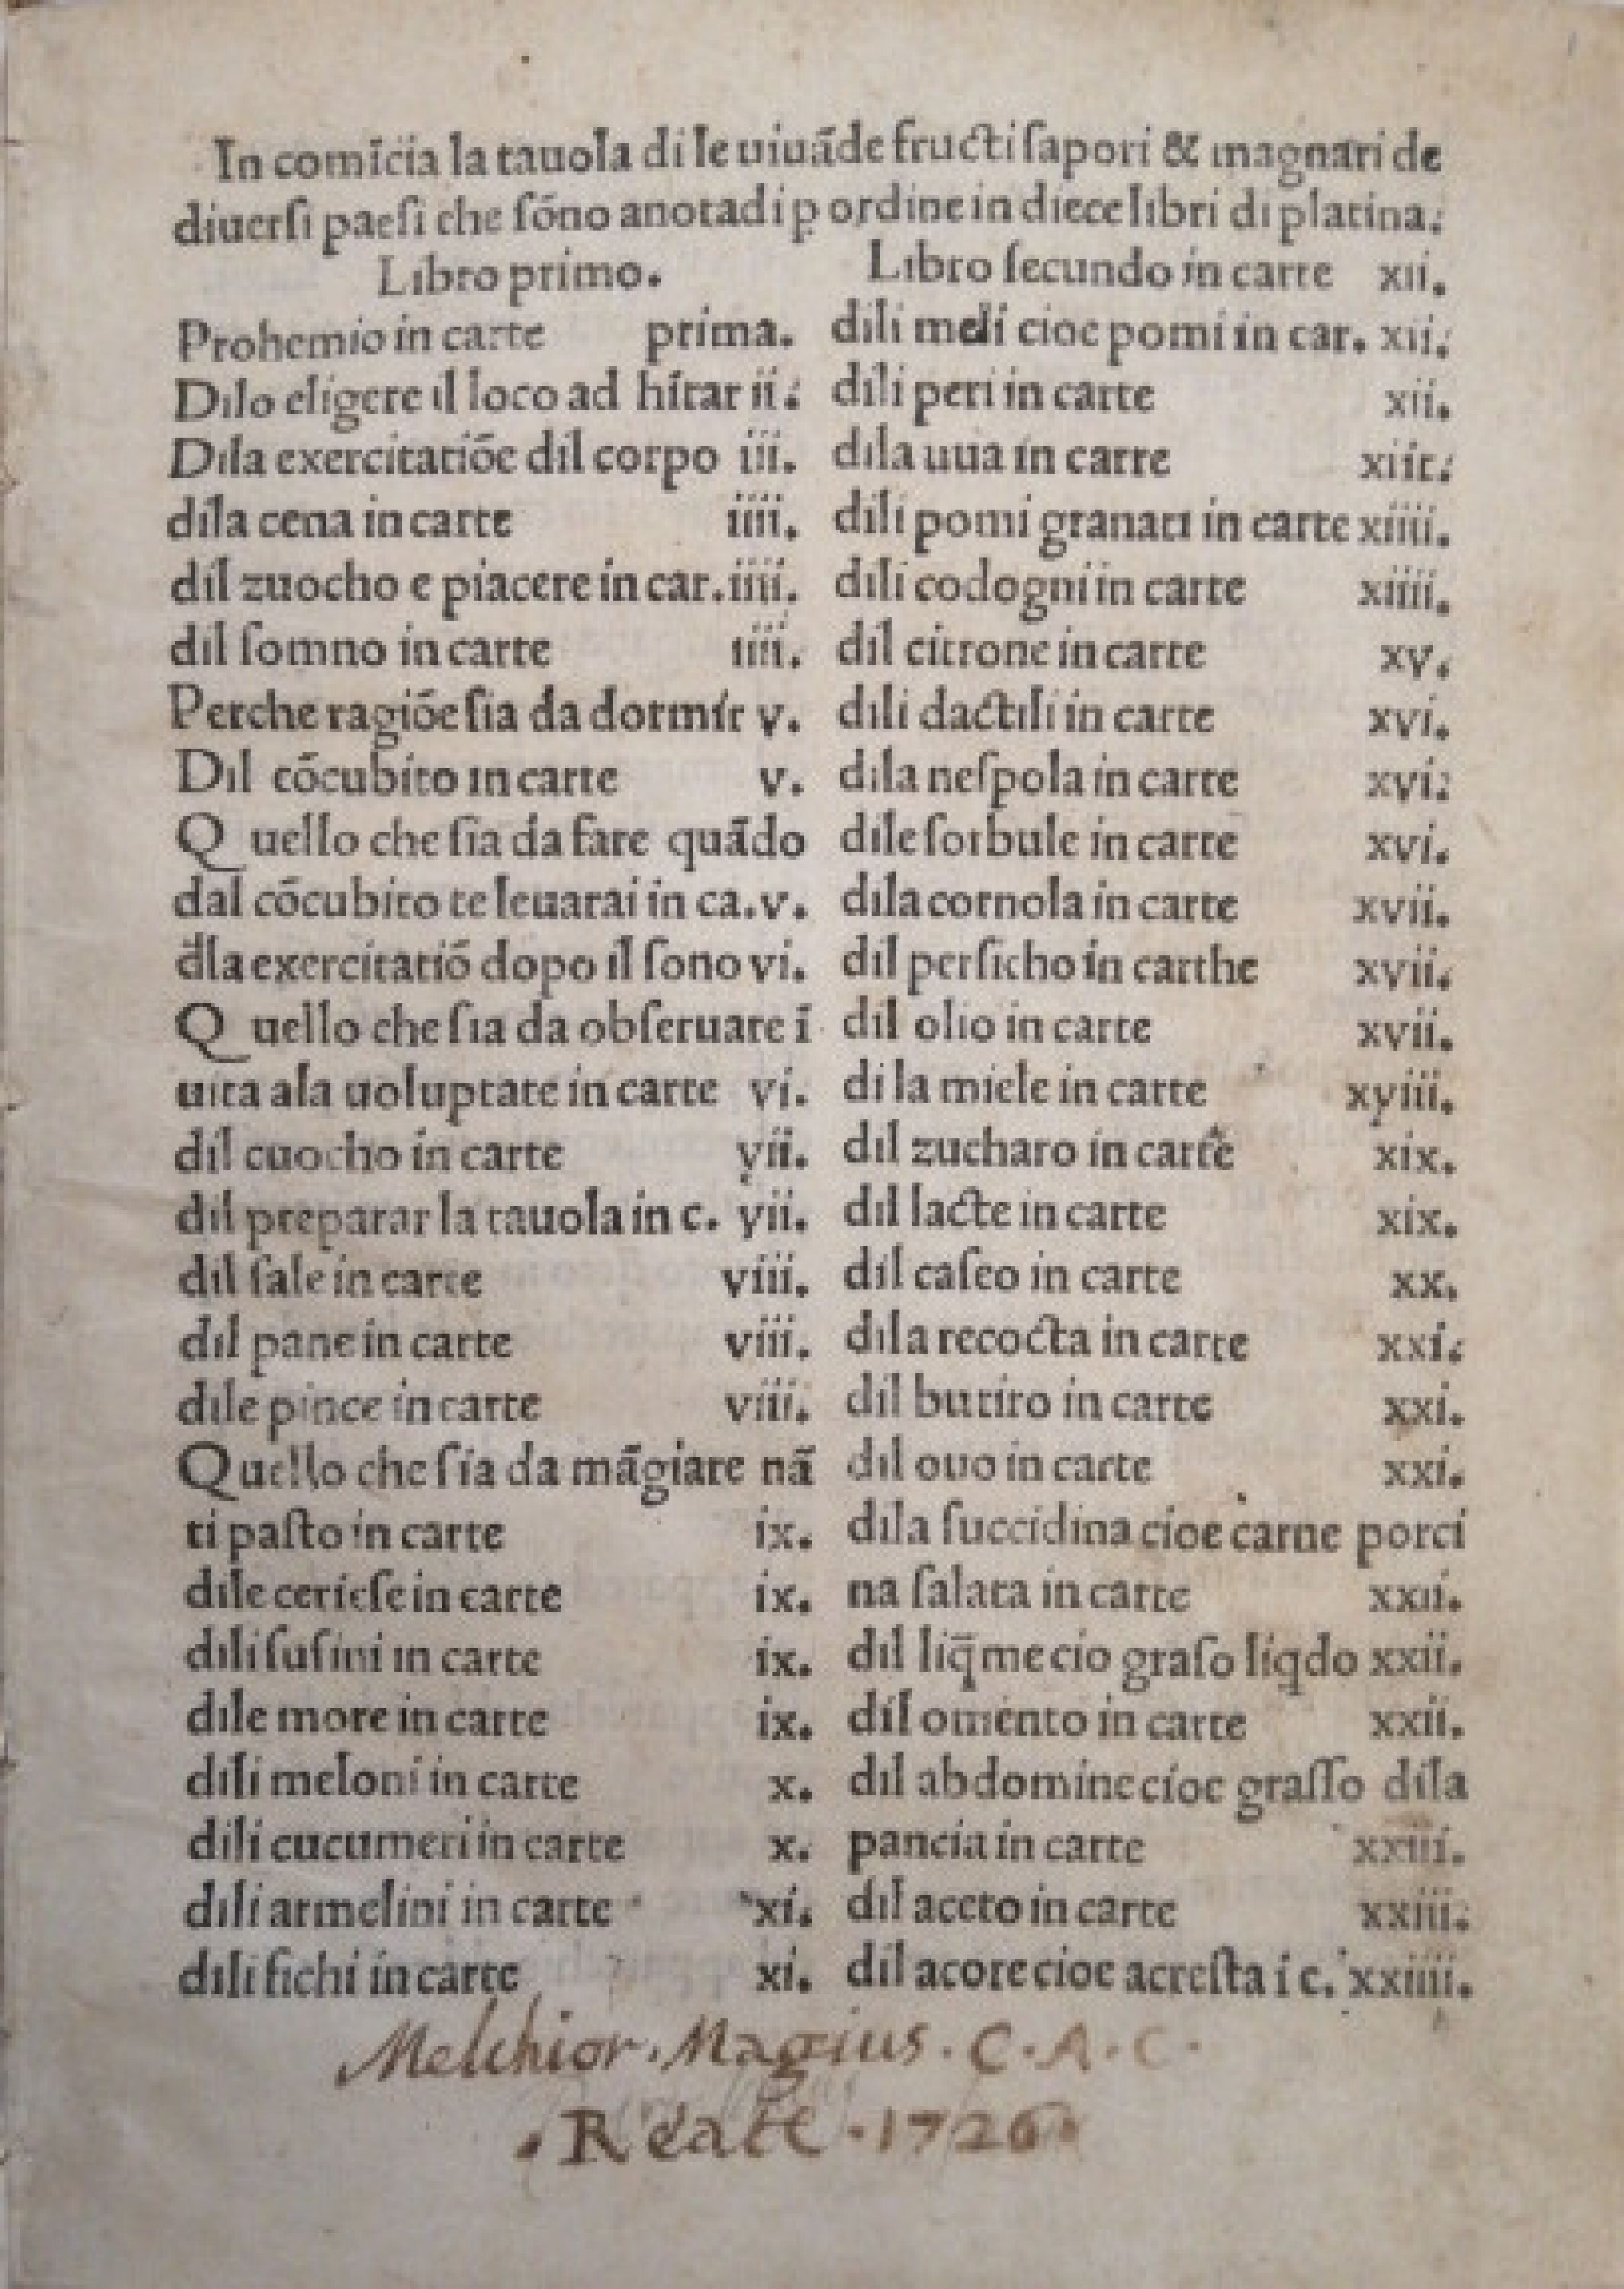 In comīcia la tauola di le uiuāde fructi ſapori & magnari de
diuerſi paeſi che ſōno anotadi ꝑ ordine in diece libri di platina.
Libro primo.
Prohemio in carte prima.
Dilo eligere il loco ad hītar ii.
Dila exercitatiōe dil corpo iii.
dila cena in carte iiii.
dil zuocho e piacere in car. iiii.
dil ſomno in carte iiii.
Perche ragiōe ſia da dormir v.
Dil cōcubito in carte v.
Quello che ſia da fare quādo
dal cōcubito te leuarai in ca. v.
d̄la exercitatiō dopo il ſono vi.
Quello che ſia da obſeruare ī
uita ala uoluptate in carte vi.
dil cuocho in carte vii.
dil preparar la tauola in c. vii.
dil ſale in carte viii.
dil pane in carte viii.
dile pince in carte viii.
Quello che ſia da māgiare nā
ti paſto in carte ix.
dile cerieſe in carte ix.
dili ſuſini in carte ix.
dile more in carte ix.
dili meloni in carte x.
dili cucumeri in carte x.
dili armelini in carte xi.
dili fichi in carte xi.
Libro ſecundo in carte xii.
dili meli cioe pomi in car. xii.
dili peri in carte xii.
dila uua in carre xiii.
dili pomi granati in carte xiiii.
dili codogni in carte xiiii.
dil citrone in carte xv.
dili dactili in carte xvi.
dila neſpola in carte xvi.
dile ſorbule in carte xvi.
dila cornola in carte xvii.
dil perſicho in carthe xvii.
dil olio in carte xvii.
di la miele in carte xviii.
dil zucharo in carte xix.
dil lacte in carte xix.
dil caſeo in carte xx.
dila recocta in carte xxi.
dil butiro in carte xxi.
dil ouo in carte xxi.
dila ſuccidina cioe carne porci
na ſalata in carte xxii.
dil liq̄me cio graſo liqdo xxii.
dil omento in carte xxii.
dil abdomine cioe graſſo dila
pancia in carte xxiii.
dil aceto in carte xxiii.
dil acore cioe acreſta i c. xxiiii.
Melchior. Magius. C. A. C.
. Reate . 1726.